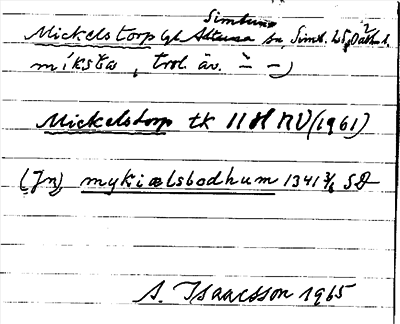 Simtuna
Mickelstorp gh Altuna sn, Simt. hd,
mikstα, trol. äv. ` – )
Mickelstorp tk 11H NV (1961)
(Jn) mykiælsbodhum 1341 3/6 SD
A. Isaacsson 1965